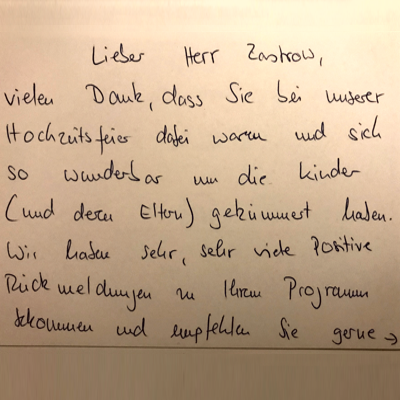 Lieber Herr Zastrow,
vielen Dank, dass Sie bei unserer
Hochzeitsfeier dabei waren und sich
so wunderbar um die Kinder
(und deren Eltern) gekümmert haben.
Wir haben sehr, sehr viele positive
Rückmeldungen zu Ihrem Programm
bekommen und empfehlen Sie gerne →